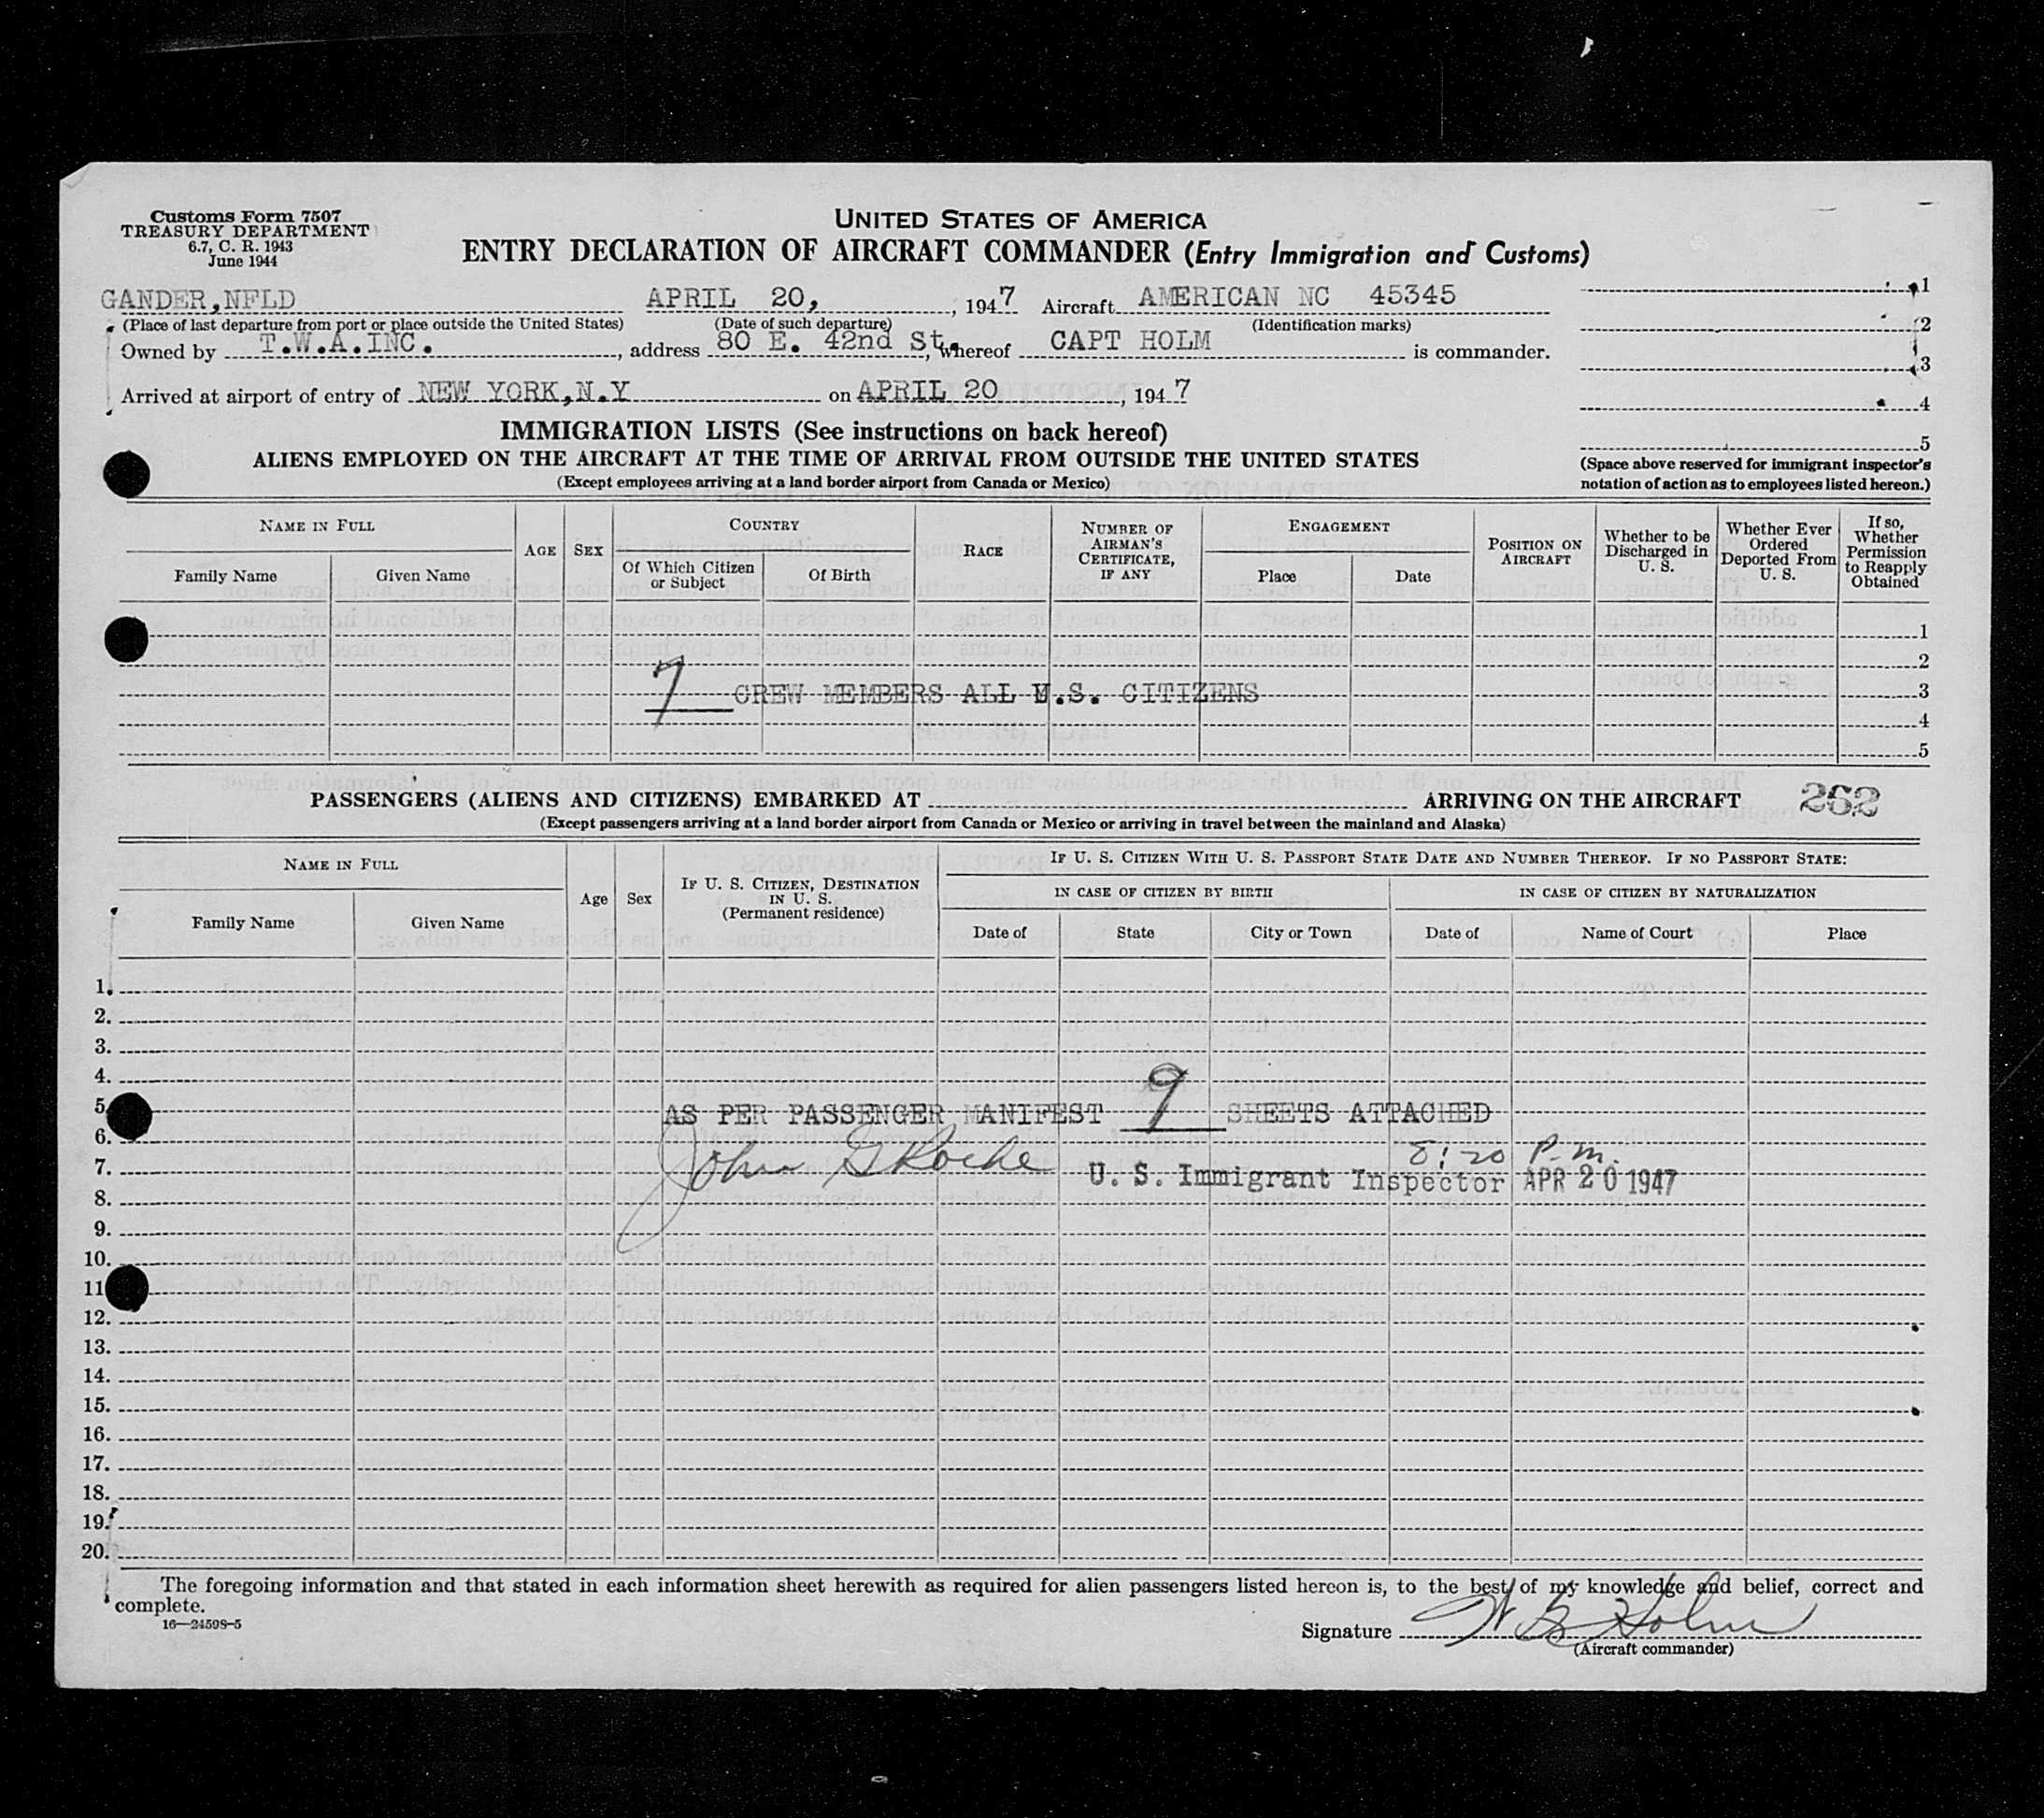 Customs Form 7507
TREASURY DEPARTMENT
6.7, C. R. 1943
June 1944
UNITED STATES OF AMERICA
ENTRY DECLARATION OF AIRCRAFT COMMANDER (Entry Immigration and Customs)
GANDER,NFLD APRIL 20, , 1947 Aircraft AMERICAN NC 45345
(Place of last departure from port or place outside the United States) (Date of such departure) (Identification marks)
Owned by T.W.A.INC. , address 80 E. 42nd St. , whereof CAPT HOLM is commander.
Arrived at airport of entry of NEW YORK,N.Y on APRIL 20 , 1947
1
2
3
4
5
(Space above reserved for immigrant inspector's
notation of action as to employees listed hereon.)
IMMIGRATION LISTS (See instructions on back hereof)
ALIENS EMPLOYED ON THE AIRCRAFT AT THE TIME OF ARRIVAL FROM OUTSIDE THE UNITED STATES
(Except employees arriving at a land border airport from Canada or Mexico)
NAME IN FULL
Family Name
Given Name
AGE
SEX
COUNTRY
Of Which Citizen
or Subject
Of Birth
RACE
NUMBER OF
AIRMAN'S
CERTIFICATE,
IF ANY
ENGAGEMENT
Place
Date
POSITION ON
AIRCRAFT
Whether to be
Discharged in
U. S.
Whether Ever
Ordered
Deported From
U. S.
If so,
Whether
Permission
to Reapply
Obtained
1
2
7 CREW MEMBERS ALL U.S. CITIZENS 3
4
5
PASSENGERS (ALIENS AND CITIZENS) EMBARKED AT ARRIVING ON THE AIRCRAFT 262
(Except passengers arriving at a land border airport from Canada or Mexico or arriving in travel between the mainland and Alaska)
NAME IN FULL
Family Name
Given Name
Age
Sex
IF U. S. CITIZEN, DESTINATION
IN U. S.
(Permanent residence)
IF U. S. CITIZEN WITH U. S. PASSPORT STATE DATE AND NUMBER THEREOF. IF NO PASSPORT STATE:
IN CASE OF CITIZEN BY BIRTH
IN CASE OF CITIZEN BY NATURALIZATION
Date of
State
City or Town
Date of
Name of Court
Place
1.
2.
3.
4.
5. AS PER PASSENGER MANIFEST 9 SHEETS ATTACHED
6.
8:20 P.m.
7. John G Roche U. S. Immigrant Inspector APR 20 1947
8.
9.
10.
11
12.
13.
14.
15.
16.
17.
18.
19.
20.
The foregoing information and that stated in each information sheet herewith as required for alien passengers listed hereon is, to the best of my knowledge and belief, correct and
complete.
16—24598-5
Signature W G Holm
(Aircraft commander)